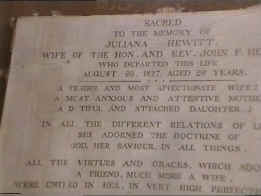 SACRED
TO THE MEMORY OF
JULIANA HEWITT,
WIFE OF THE HON. AND REV. JOHN P. HE
WHO DEPARTED THIS LIFE
AUGUST 1827, AGED 28 YEARS.
A TENDER AND MOST AFFECTIONATE WIFE
A MOST ANXIOUS AND ATTENTIVE MOTHE
A DUTIFUL AND ATTACHED DAUGHTER
IN ALL THE DIFFERENT RELATIONS OF LI
SHE ADORNED THE DOCTRINE OF
GOD, HER SAVIOUR, IN ALL THINGS.
ALL THE VIRTUES AND GRACES, WHICH ADO
A FRIEND, MUCH MORE A WIFE,
WERE UNITED IN HER, IN VERY HIGH PERFECTIO